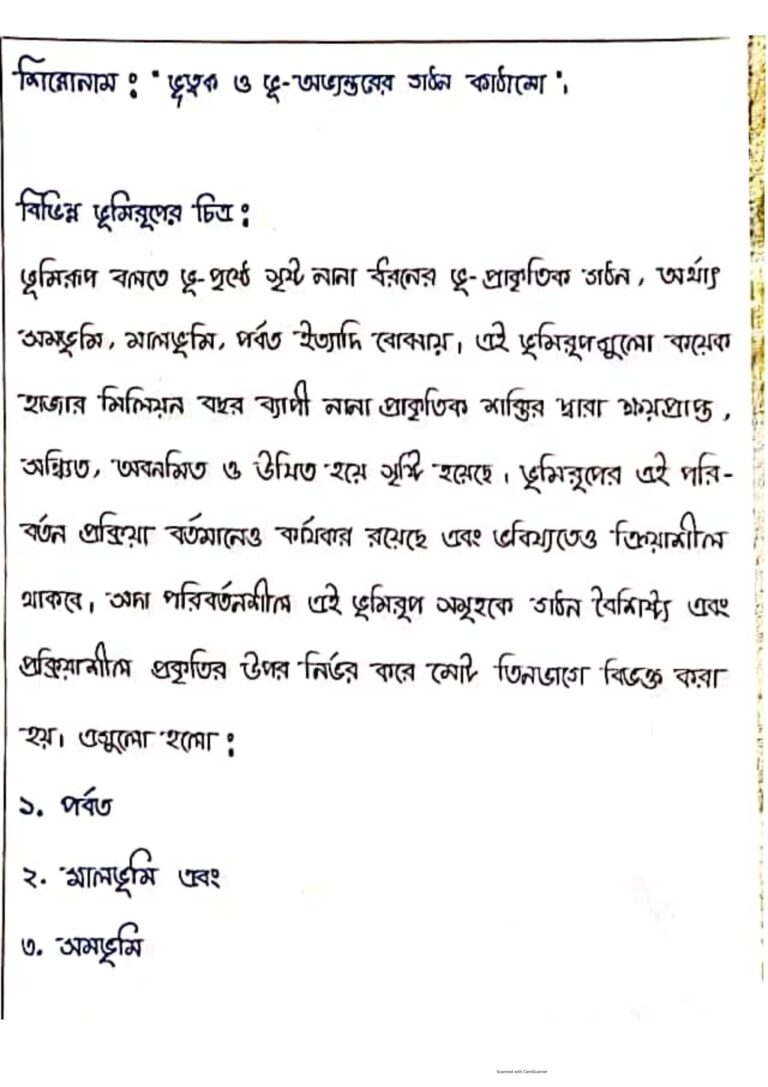 শিরোনাম : "ভূত্বক ও ভূ-অভ্যন্তরের গঠন কাঠামো",
বিভিন্ন ভূমিরূপের চিত্র :
ভূমিরূপ বলতে ভূ-পৃষ্ঠে সৃষ্ট নানা ধরনের ভূ-প্রাকৃতিক গঠন, অর্থাৎ
সমভূমি, মালভূমি, পর্বত ইত্যাদি বোঝায়। এই ভূমিরূপগুলো কয়েক
হাজার মিলিয়ন বছর ব্যাপী নানা প্রাকৃতিক শক্তির দ্বারা ক্ষয়প্রাপ্ত,
সঞ্চিত, অবনমিত ও উত্থিত হয়ে সৃষ্টি হয়েছে। ভূমিরূপের এই পরি-
বর্তন প্রক্রিয়া বর্তমানেও কার্যকর রয়েছে এবং ভবিষ্যতেও ক্রিয়াশীল
থাকবে। সদা পরিবর্তনশীল এই ভূমিরূপ সমূহকে গঠন বৈশিষ্ট্য এবং
প্রক্রিয়াশীল প্রকৃতির উপর নির্ভর করে মোট তিনভাগে বিভক্ত করা
হয়। এগুলো হলো :
১. পর্বত
২. মালভূমি এবং
৩. সমভূমি
Scanned with CamScanner